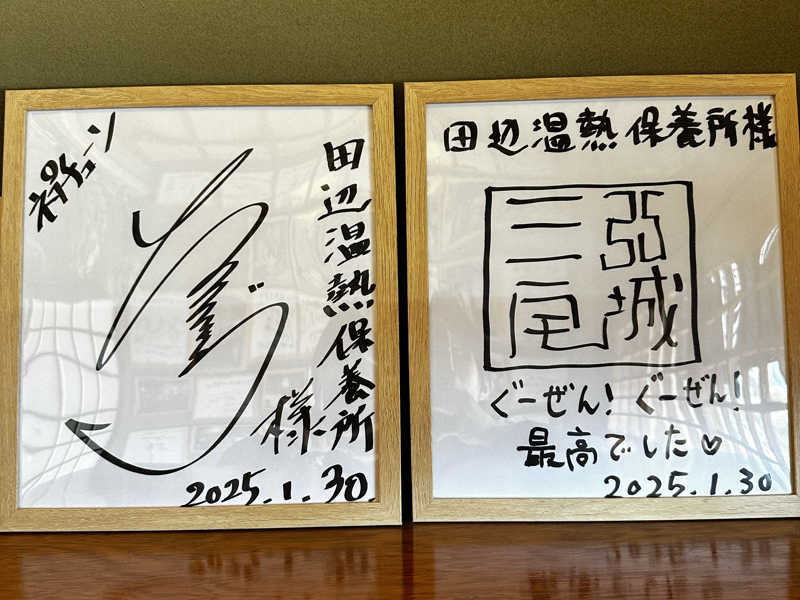 神チューン
田辺温熱保養所
様
2025.1.30.
田辺温熱保養所様
三弥
宅城
ぐーぜん！ぐーぜん！
最高でした♡
2025.1.30